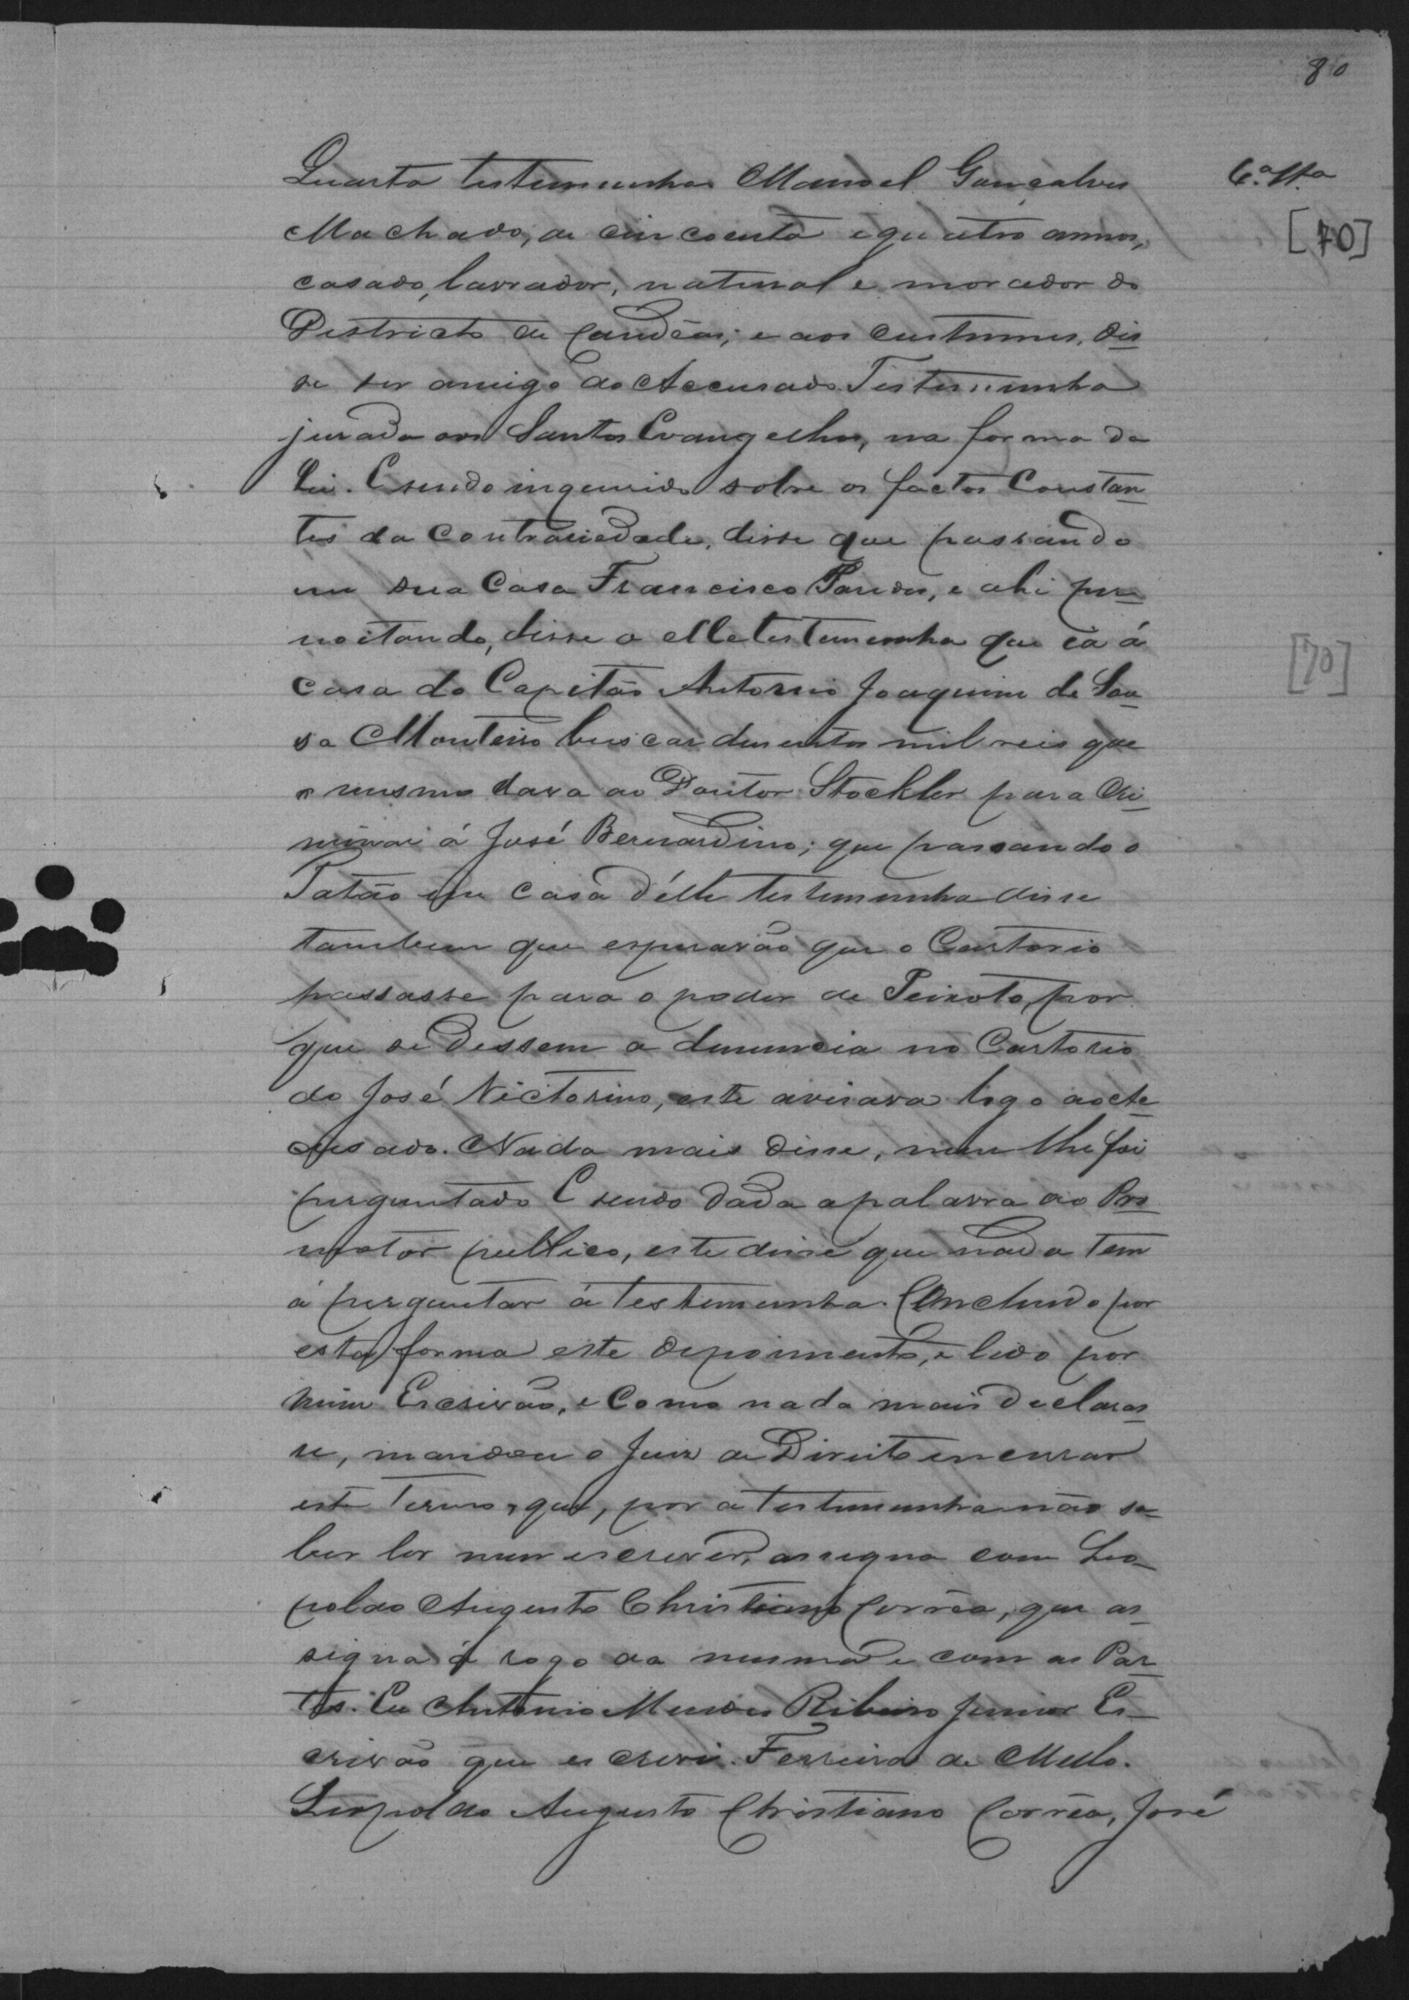 80
Quarta testemunha Manoel Gonçalves
6.ª Tt.ª
Machado, de cincoenta e quatro annos,
[70]
casado, lavrador, natural e morador do
Districto de Candêas; e aos custumes, dis-
se ser amigo do Accusado. Testemunha
jurada aos Santos Evangelhos, na forma da
Lei. E sendo inquerido sobre os factos Constan-
tes da contrariedade, disse que passando
em sua Casa Francisco Paredes, e ahi per-
noitando, disse a elle testemunha que ia á
[70]
casa do Capitão Antonio Joaquim de Sou-
sa Monteiro buscar dusentos mil reis que
o mesmo dava ao Doutor Stockler para Cri-
minar á José Bernardino; que passando o
Tatão em casa d'élle testemunha disse
tambem que esperavão que o Cartorio
passasse para o poder de Peixoto, por
que se dessem a denuncia no Cartorio
do José Victorino, este avisava logo ao Ac-
cusado. Nada mais disse, nem lhe foi
perguntado E sendo dada a palavra ao Pro-
motor publico, este disse que nada tem
á perguntar á testemunha. Concluido por
esta forma este depoimento, e lido por
mim Escrivão, e Como nada mais declaras-
se, mandou o Juiz de Direito encerrar
este termo, que, por a testemunha não sa-
ber ler nem escrever, assigna com Leo-
poldo Augusto Christiano Corrêa, que as-
signa á rogo da mesma e com as Par-
tes. Eu Antonio Mendes Ribeiro Junior Es-
crivão que escrevi. Ferreira de Mello.
Leopoldo Augusto Christiano Corrêa, José